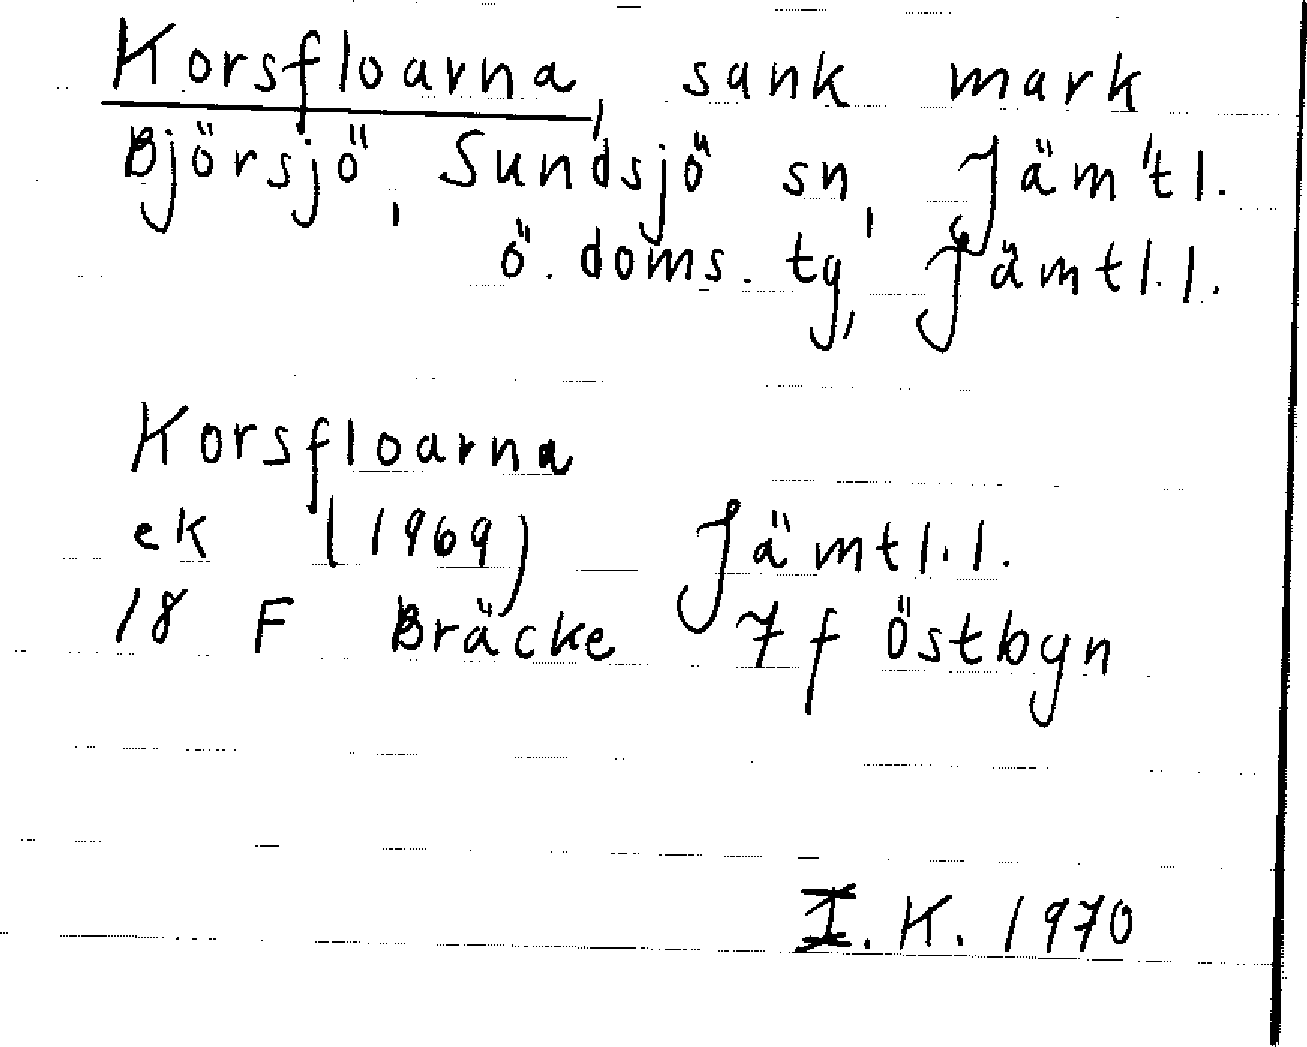 Korsfloarna, sank mark
Björsjö, Sundsjö sn, Jämtl.
ö. doms. tg, Jämtl. l.
Korsfloarna
ek (1969) Jämtl. l.
18 F Bräcke 7 f Östbyn
I. K. 1970